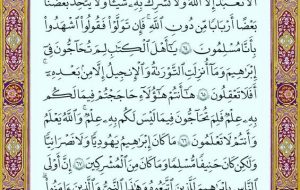 أَلَّا نَعْبُدَ إِلَّا ٱللَّهَ وَلَا نُشْرِكَ بِهِۦ شَيْـًٔا وَلَا يَتَّخِذَ بَعْضُنَا
بَعْضًا أَرْبَابًا مِّن دُونِ ٱللَّهِ ۚ فَإِن تَوَلَّوْا۟ فَقُولُوا۟ ٱشْهَدُوا۟
بِأَنَّا مُسْلِمُونَ ٦٤ يَـٰٓأَهْلَ ٱلْكِتَـٰبِ لِمَ تُحَآجُّونَ فِىٓ
إِبْرَٰهِيمَ وَمَآ أُنزِلَتِ ٱلتَّوْرَىٰةُ وَٱلْإِنجِيلُ إِلَّا مِنۢ بَعْدِهِۦٓ ۚ
أَفَلَا تَعْقِلُونَ ٦٥ هَـٰٓأَنتُمْ هَـٰٓؤُلَآءِ حَـٰجَجْتُمْ فِيمَا لَكُم
بِهِۦ عِلْمٌ فَلِمَ تُحَآجُّونَ فِيمَا لَيْسَ لَكُم بِهِۦ عِلْمٌ ۚ وَٱللَّهُ يَعْلَمُ
وَأَنتُمْ لَا تَعْلَمُونَ ٦٦ مَا كَانَ إِبْرَٰهِيمُ يَهُودِيًّا وَلَا نَصْرَانِيًّا
وَلَـٰكِن كَانَ حَنِيفًا مُّسْلِمًا وَمَا كَانَ مِنَ ٱلْمُشْرِكِينَ ٦٧ إِنَّ أَوْلَى
ٱلنَّاسِ بِإِبْرَٰهِيمَ لَلَّذِينَ ٱتَّبَعُوهُ وَهَـٰذَا ٱلنَّبِىُّ وَٱلَّذِينَ ءَامَنُوا۟